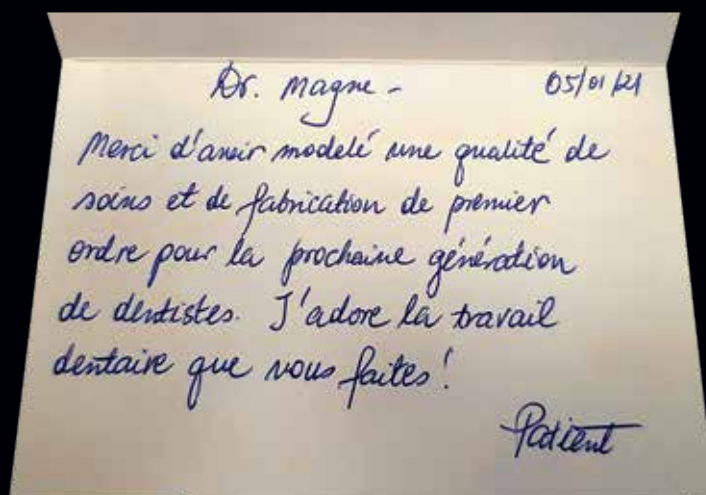 Dr. Magne - 05/01/21
Merci d'avoir modelé une qualité de
soins et de fabrication de premier
ordre pour la prochaine génération
de dentistes. J'adore la travail
dentaire que vous faites!
Patient